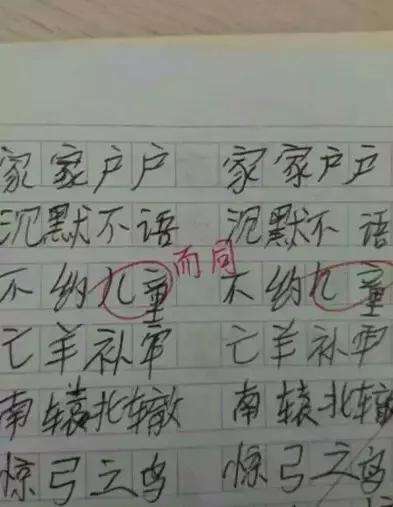 家家户户 家家户户
沉默不语 沉默不语
而同
不约儿童 不约儿童
亡羊补牢 亡羊补牢
南辕北辙 南辕北辙
惊弓之鸟 惊弓之鸟